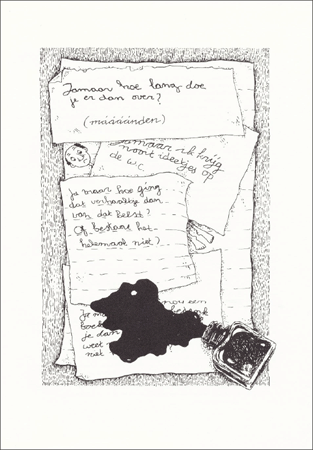 Jamaar hoe lang doe
je er dan over?
(máááánden)
Jamaar ik krijg
nooit ideetjes op
de w.c.
Ja maar hoe ging
dat verhaaltje dan
van dat
Of bestaat het
helemaal niet?
nog een
je ma
boe
je dan
weet
niet